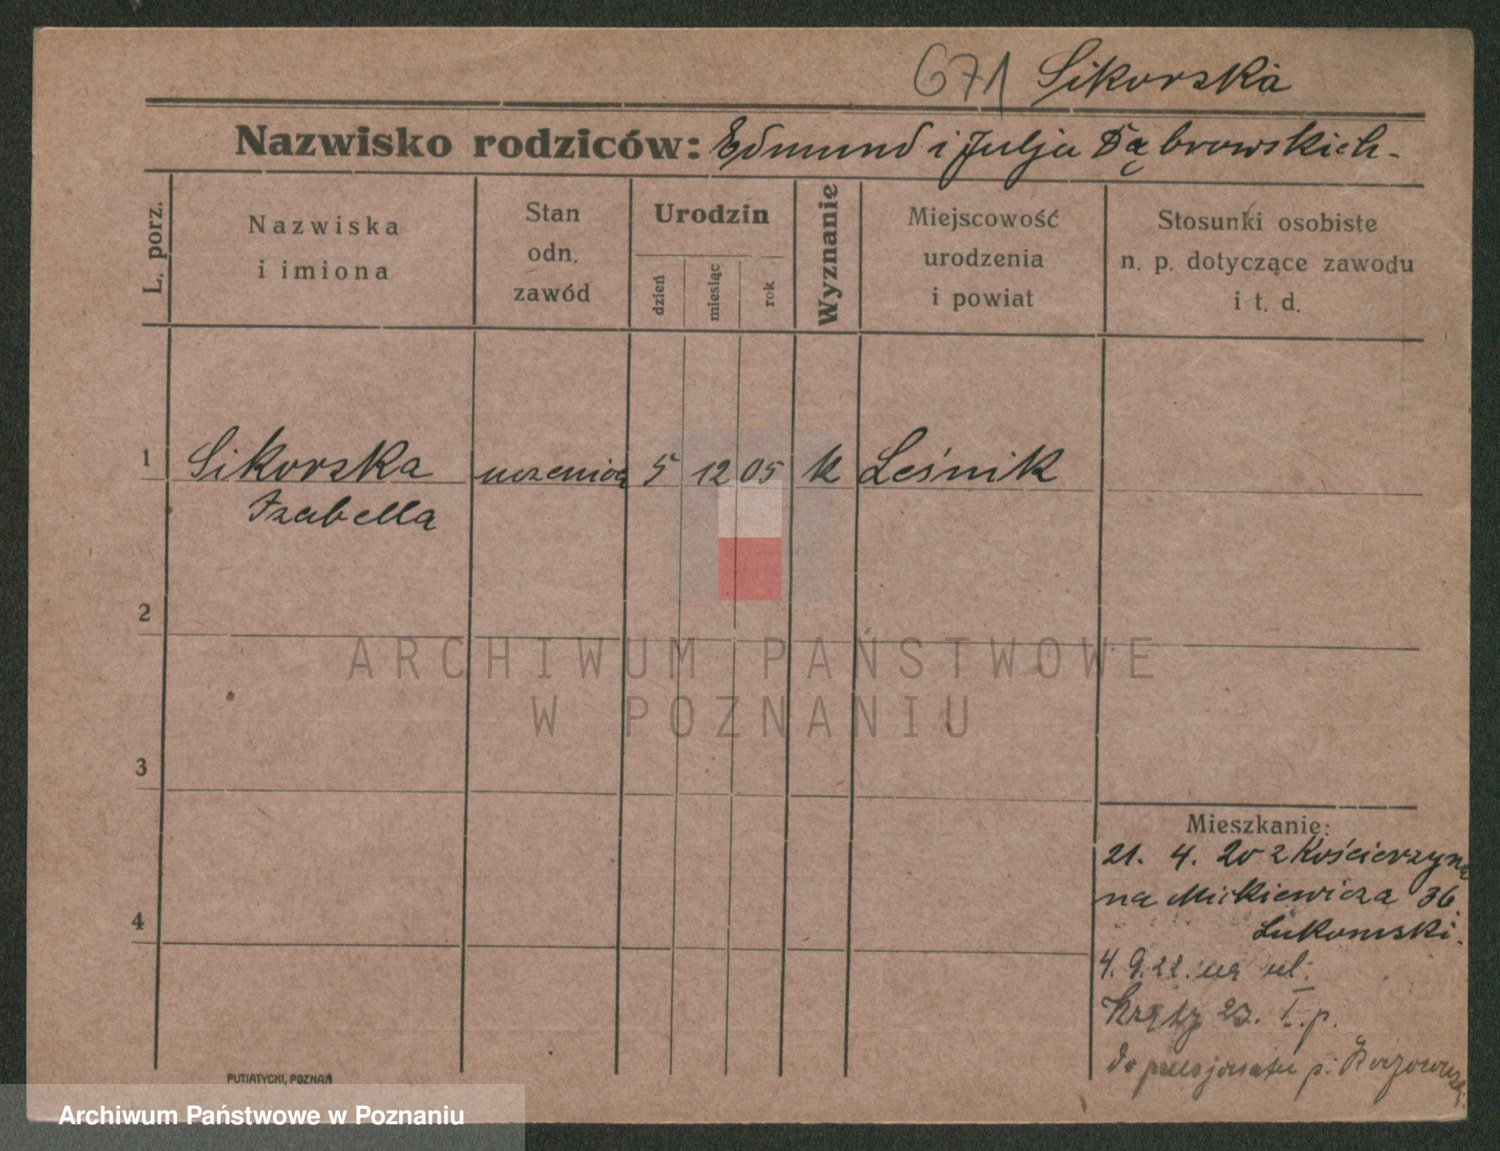 671 Sikorska
Nazwisko rodziców: Edmund i Julja Dąbrowskich-
L. porz.
Nazwiska
i imiona
Stan
odn.
zawód
Urodzin
dzień
miesiąc
rok
Wyznanie
Miejscowość
urodzenia
i powiat
Stosunki osobiste
n. p. dotyczące zawodu
i t. d.
1 Sikorska uczenica 5 12 05 k Leśnik
Izabella
2
3
4
Mieszkanie:
21. 4. 20 z Kościerzyna
na Mickiewicza 36.
Łukomski.
4. 9. 22. na ul.
Kręty 23. I. p.
do pensjonatu p.
PUTIATYCKI, POZNAŃ
ARCHIWUM PAŃSTWOWE
W POZNANIU
Archiwum Państwowe w Poznaniu